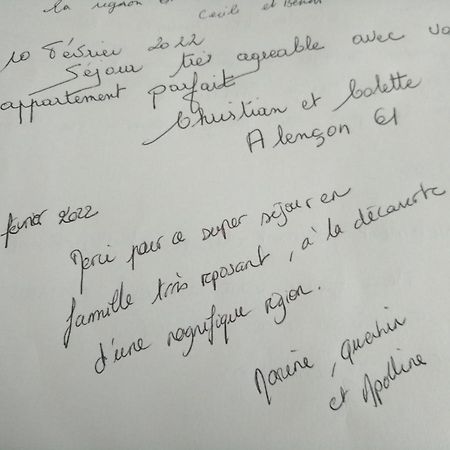 la région en
Cecile et Benoit
10 Février 2022
Séjour très agreable avec vo
appartement parfait
Christian et Colette
Alençon 61
février 2022
Merci pour ce super séjour en
famille très reposant, à la découverte
d'une magnifique région.
Marine, Quentin
et Apolline